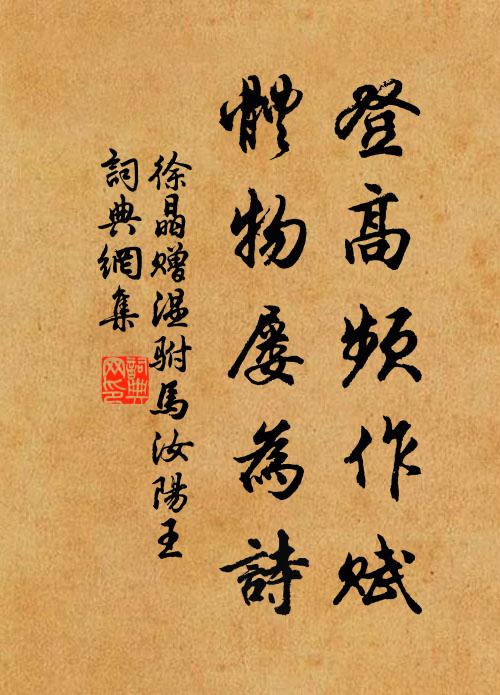 登高頻作賦
體物屡為詩
徐晶贈温駙馬汝陽王
詞典網集
詞典网印